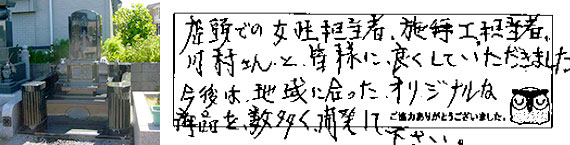 店頭での女性担当者、施工担当者、
川村さん、と、皆様に、良くしていただきました
今後は、地域に合った、オリジナルな
商品を、数多く、開発して
下さい。
ご協力ありがとうございました。